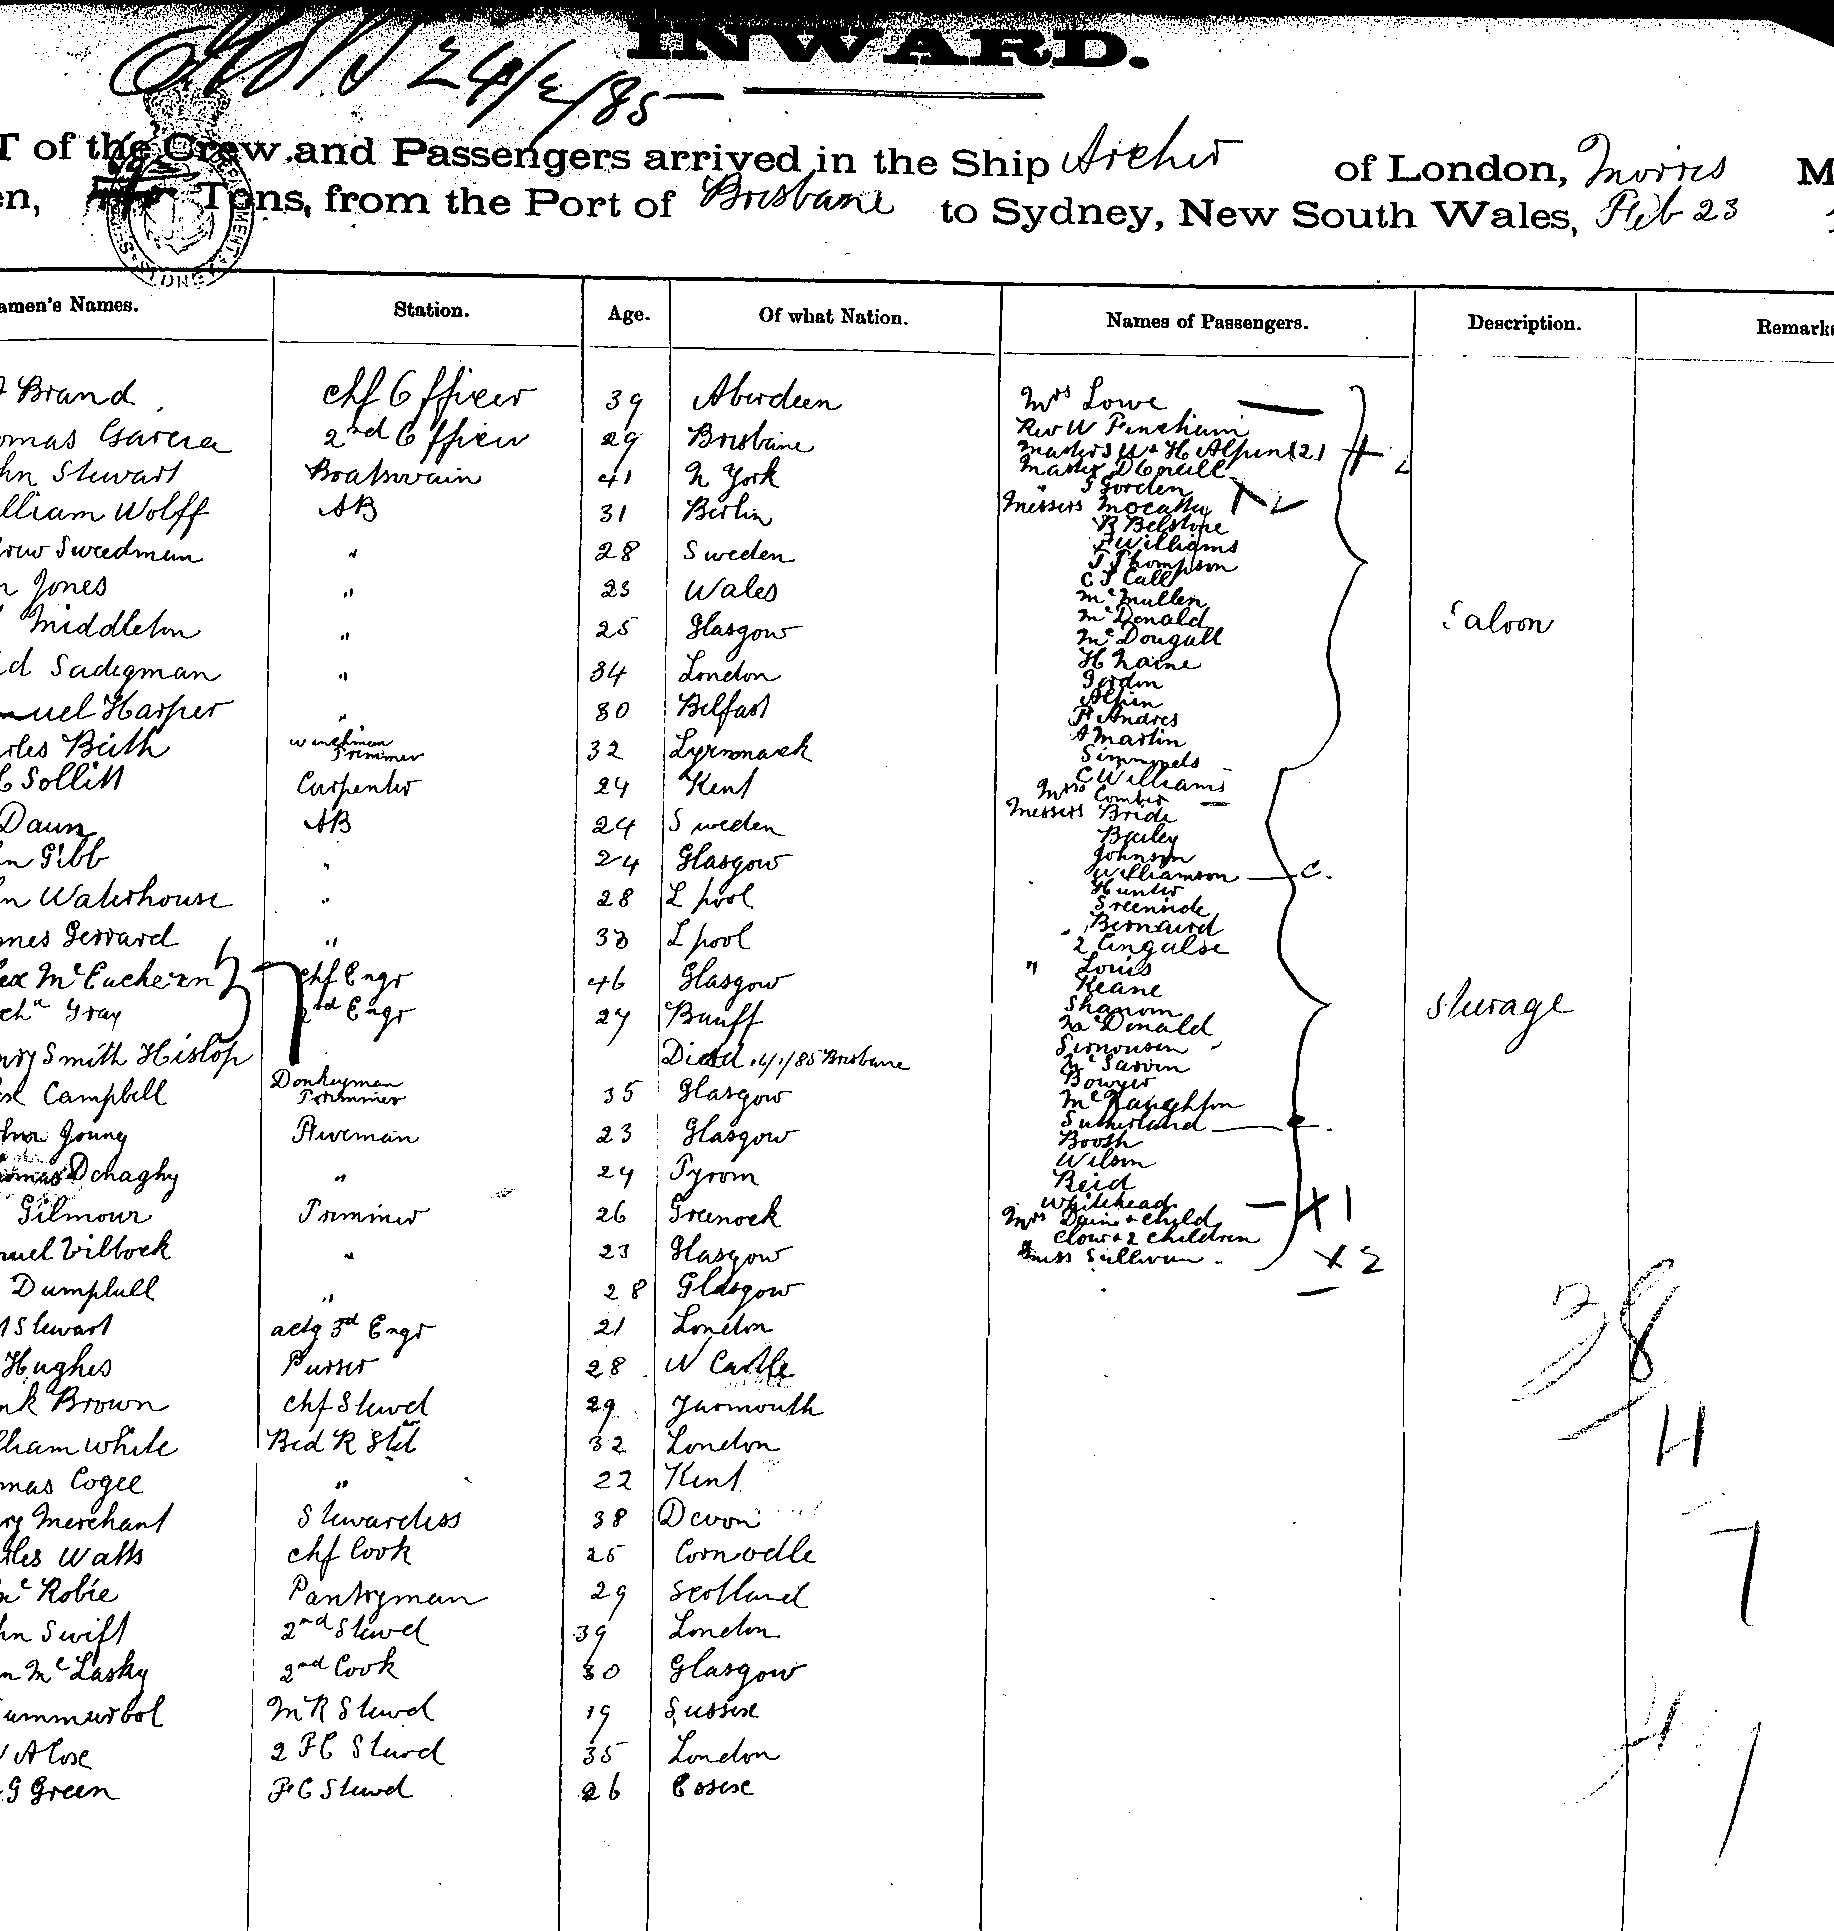 INWARD.
24/2/85
T of the Crew and Passengers arrived in the Ship Archer of London, Morris M
en, Tons, from the Port of Brisbane to Sydney, New South Wales, Feb 23
amen's Names. Station. Age. Of what Nation. Names of Passengers. Description. Remarks
Brand chf Officer 39 Aberdeen
omas Garcia 2nd Officer 29 Brisbane
hn Stewart Boatswain 41 N York
lliam Wolff AB 31 Berlin
rew Sweedman " 28 Sweden
n Jones " 23 Wales
Middleton " 25 Glasgow
d Sadegman " 34 London
muel Harper " 30 Belfast
rles Buth winchman Trimmer 32
Sollitt Carpenter 24 Kent
Daun AB 24 Sweden
n Gibb " 24 Glasgow
hn Waterhouse " 28 L pool
mes Gerrard " 33 L pool
ex McEuchern chf Engr 46 Glasgow
Gray 2nd Engr 27 Banff
nry Smith Hislop Died /1/85 Brisbane
Campbell Donkeyman Trimmer 35 Glasgow
Young Fireman 23 Glasgow
omas Dchaghy " 24 Tyrom
Gilmour Trimmer 26 Greenock
muel Villock " 23 Glasgow
Dumphell " 28 Glasgow
Stewart actg 3rd Engr 21 London
Hughes Purser 28 N Castle
nk Brown chf Stewd 29 Yarmouth
lliam White Bed R Std 32 London
mas Cogee " 22 Kent
ry Merchant Stewardess 38 Devon
rles Watts chf Cook 25 Cornwelle
Mc Robie Pantryman 29 Scotland
hn Swift 2nd Stewd 39 London
n McLasky 2nd Cook 30 Glasgow
M R Stewd 19 Sussex
Alose 2 F C Stewd 35 London
G Green F C Stewd 26 Essex
Mrs Lowe
Rev W Fincham
Masters W & H Alpen (2)
Master D ONeill
" J Gorden
Messers Mocatta
R Belstone
F Williams
J Thompson
C J Call
McMullen
McDonald
McDougall
H Naine
Gordon
Alpen
F Andres
A Martin
Simmels
C Williams
Saloon
Mrs Comber
Messers Bride
Bailey
Johnson
Williamson C.
Hunter
Greenside
Bernaird
2 Cingalese
" Louis
Keane
Shanom
McDonald
Simonsen
McGarvin
Bowyer
McNaughton
Sutherland
Booth
Wilson
Reid
Whitehead
Mrs Daine & child
Clow & 2 children
Miss Sullivan
Sterage
X 1
X 2
38
4
7